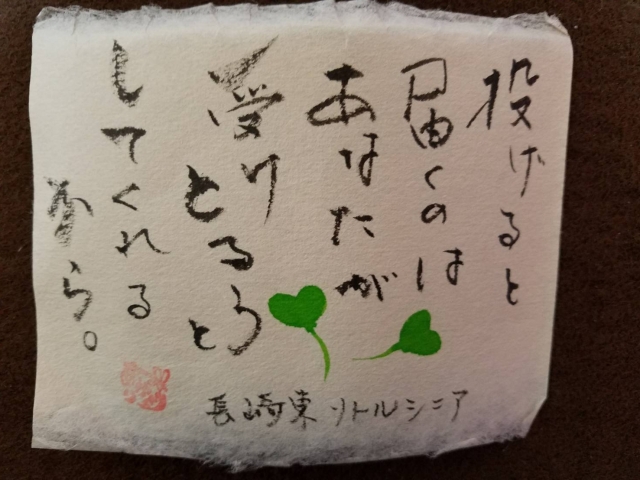 投げると
届くのは
あなたが
受け
とろうと
してくれる
から。
長崎東リトルシニア